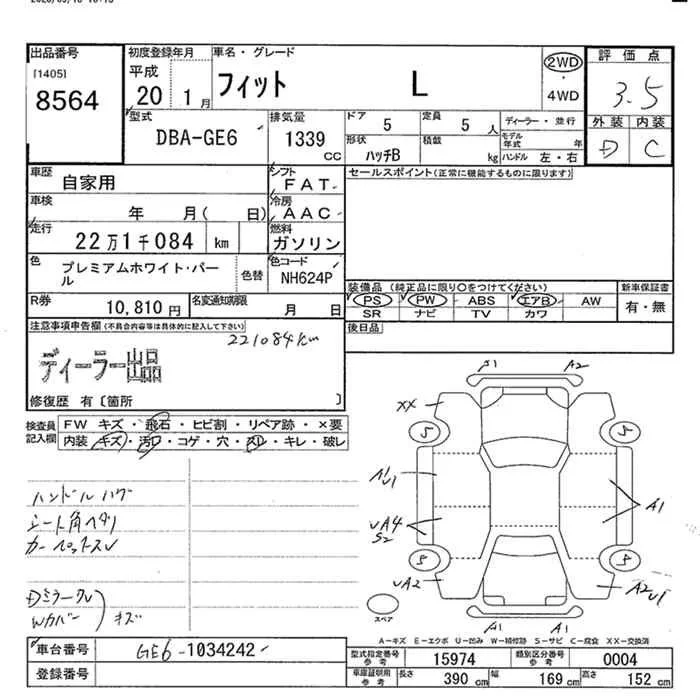 出品番号
[1405]
8564
初度登録年月
平成
20 1月
車名・グレード
フィット L
2WD
・
4WD
評価点
3.5
外装 内装
D C
型式
DBA-GE6
排気量
1339
CC
ドア
5
定員
5 人
形状
ハッチB
積載
kg
ディーラー・並行
モデル
年式 年
ハンドル 左・右
車歴
自家用
シフト
FAT
車検
年 月( 日)
冷房
AAC
走行
22万1千084 km
燃料
ガソリン
色
プレミアムホワイト・パー
ル
色替
色コード
NH624P
R券
10,810 円
名変通知期限
月 日
セールスポイント(正常に機能するものに限ります)
装備品 (純正品に限り〇をつけてください)
PS PW ABS エアB AW
SR ナビ TV カワ
新車保証書
有・無
後日品
注意事項申告欄(不具合内容等は具体的に記入して下さい)
221084km
ディーラー出品
修復歴 有〔箇所 〕
検査員
記入欄
FW キズ・飛石・ヒビ割・リペア跡・×要
内装・キズ・汚れ・コゲ・穴・スレ・キレ・破レ
ハンドルハゲ
シート角ヘタリ
Dミラーカバー
キズ
A1 A2
XX
5 5
A1
U1
UA4
S2
A1
5 5
UA2
A2
U1
A1 A1
スペア
A-キズ E-エクボ U-凹み W-補修跡 S-サビ C-腐食 XX-交換済
車台番号
GE6-1034242
登録番号
型式指定番号
参考
15974
類別区分番号
参考
0004
車庫証明用
参考
長さ
390 cm
幅
169 cm
高さ
152 cm